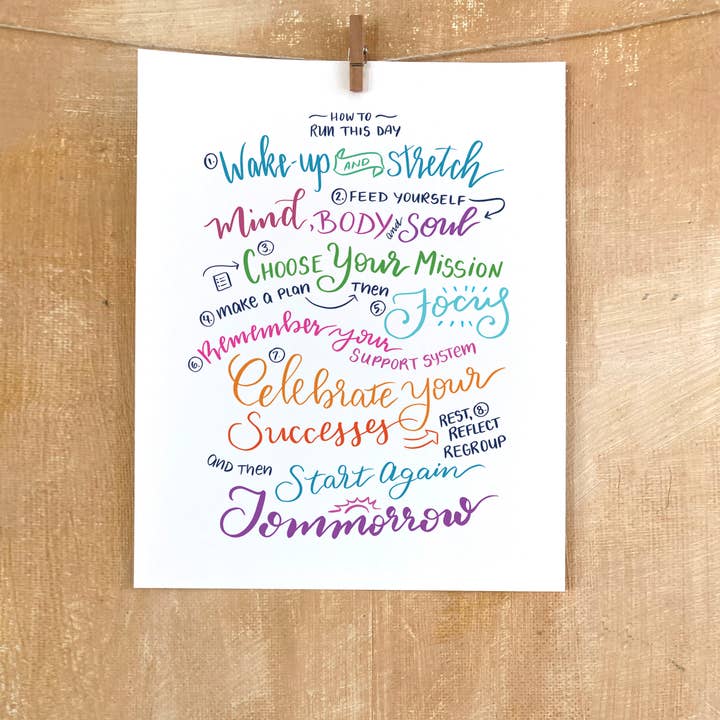 ~ HOW TO ~
RUN THIS DAY
1. Wake-up AND Stretch
2. FEED YOURSELF
Mind, BODY and Soul
3.
CHOOSE Your MISSION
4. MAKE A PLAN Then
5. Focus
6. Remember your
SUPPORT SYSTEM
7.
Celebrate Your
Successes
REST, 8.
REFLECT
REGROUP
AND Then Start Again
Tommorrow